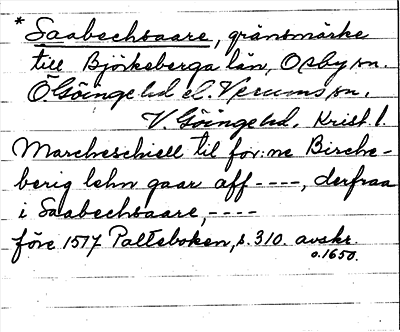 * Saabechsaare, gränsmärke
till Björkeberga län, Osby sn.
Ö. Göinge hd el. Verums sn,
V. Göinge hd. Krist. l.
Marcheschiell til for:ne Birche-
berig lehn gaar aff ----, derfraa
i Saabechsaare, ----
före 1517 Palteboken, s. 310. avskr.
o. 1650.